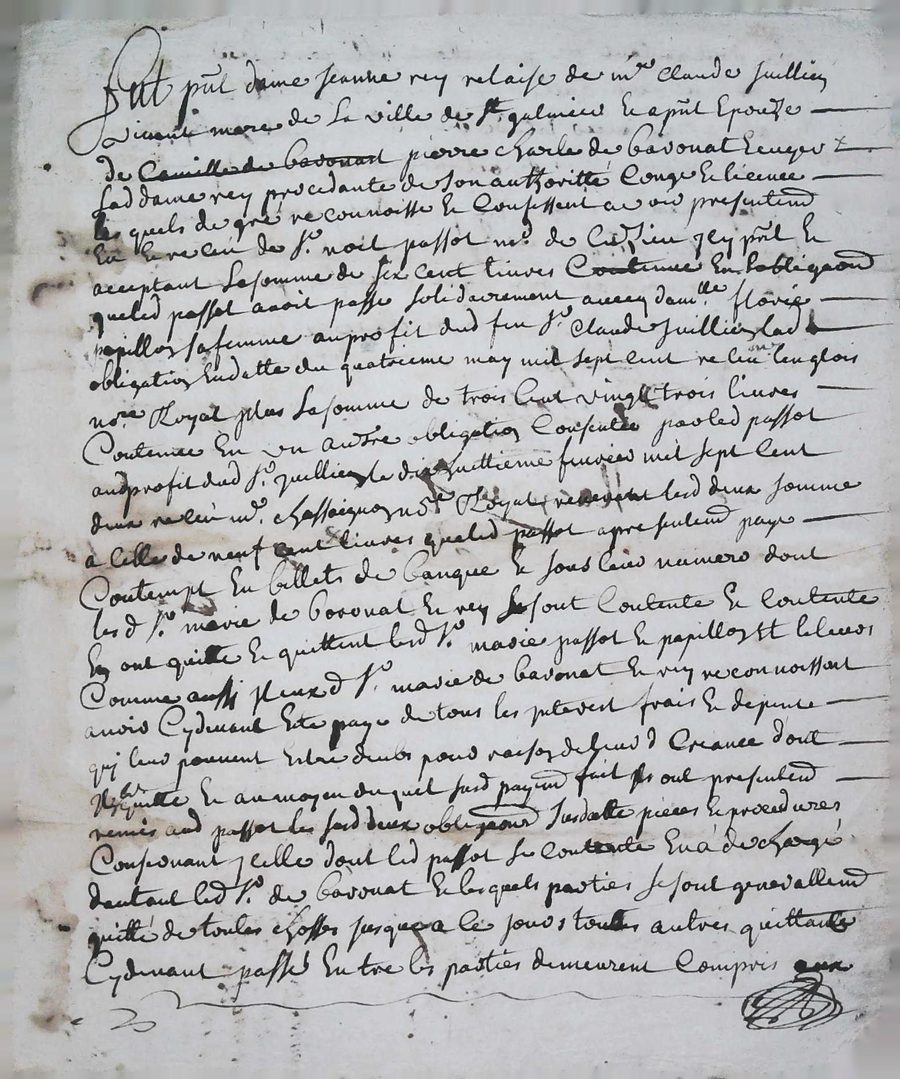 fut pnt dame jeanne rey relaise de mre claude Juillien
vivant mere de La ville de St galmier Et apnt Epouze
de Camille de bavonat pierre charle de bavonat Ecuyer
Lad dame rey procedante de son authoritté Conge Et licence
les quels de gré reconnoisse Et Confessent avoir presentemd
Eu Et receu de Sr noit passot md de jcy pnt Et
acceptant La somme de six cent livres Contenue En Lobligeaond
queled passot avoit passé solidairement avecq damlle florie
papillon sa femme au profit dud feu Sr Claude Juillien lad
obligation Endatte du quatrieme may mil sept cent receu Lenglois
nore Royal plus La somme de trois Cent vingt trois livres
Contenue En un autre obligation Consentie parled passot
audprofit dud Sr Juillien le dix huittieme fevrier mil sept cent
deux receu me chassaignon nore Royal revenent lesd deux somme
a Celle de neuf cent livres queled passot apresentemd paye
Contempt En billets de banque Et sous leur numero dont
lesd Sr marie de bavonat Et rey se sont Contente Et Contente
En ont quitté Et quittent lesd Sr marie passot Et papillon Et le leurs
Comme aussi yceux d Sr marie de bavonat Et rey reconnoissent
avoir Cydevant Este paye de tous les jnterest frais Et depense
quj leur peuvent Estre deubs pour raison de leurd Creance dont
quitte Et au moyen duquel susd payemd fait ils ont presentemd
remis aud passot les susd deux obligeaond susdatte pieces Et procedures
Consernant jcelle dont led passot se contente En a décharge
dautant led Sr de bavonat Et lesquels parties se sont generallemd
quitté de toutes chosses jusque a ce jours toutes autres quittance
Cydevant passé Entre les parties demeurent Compris aux